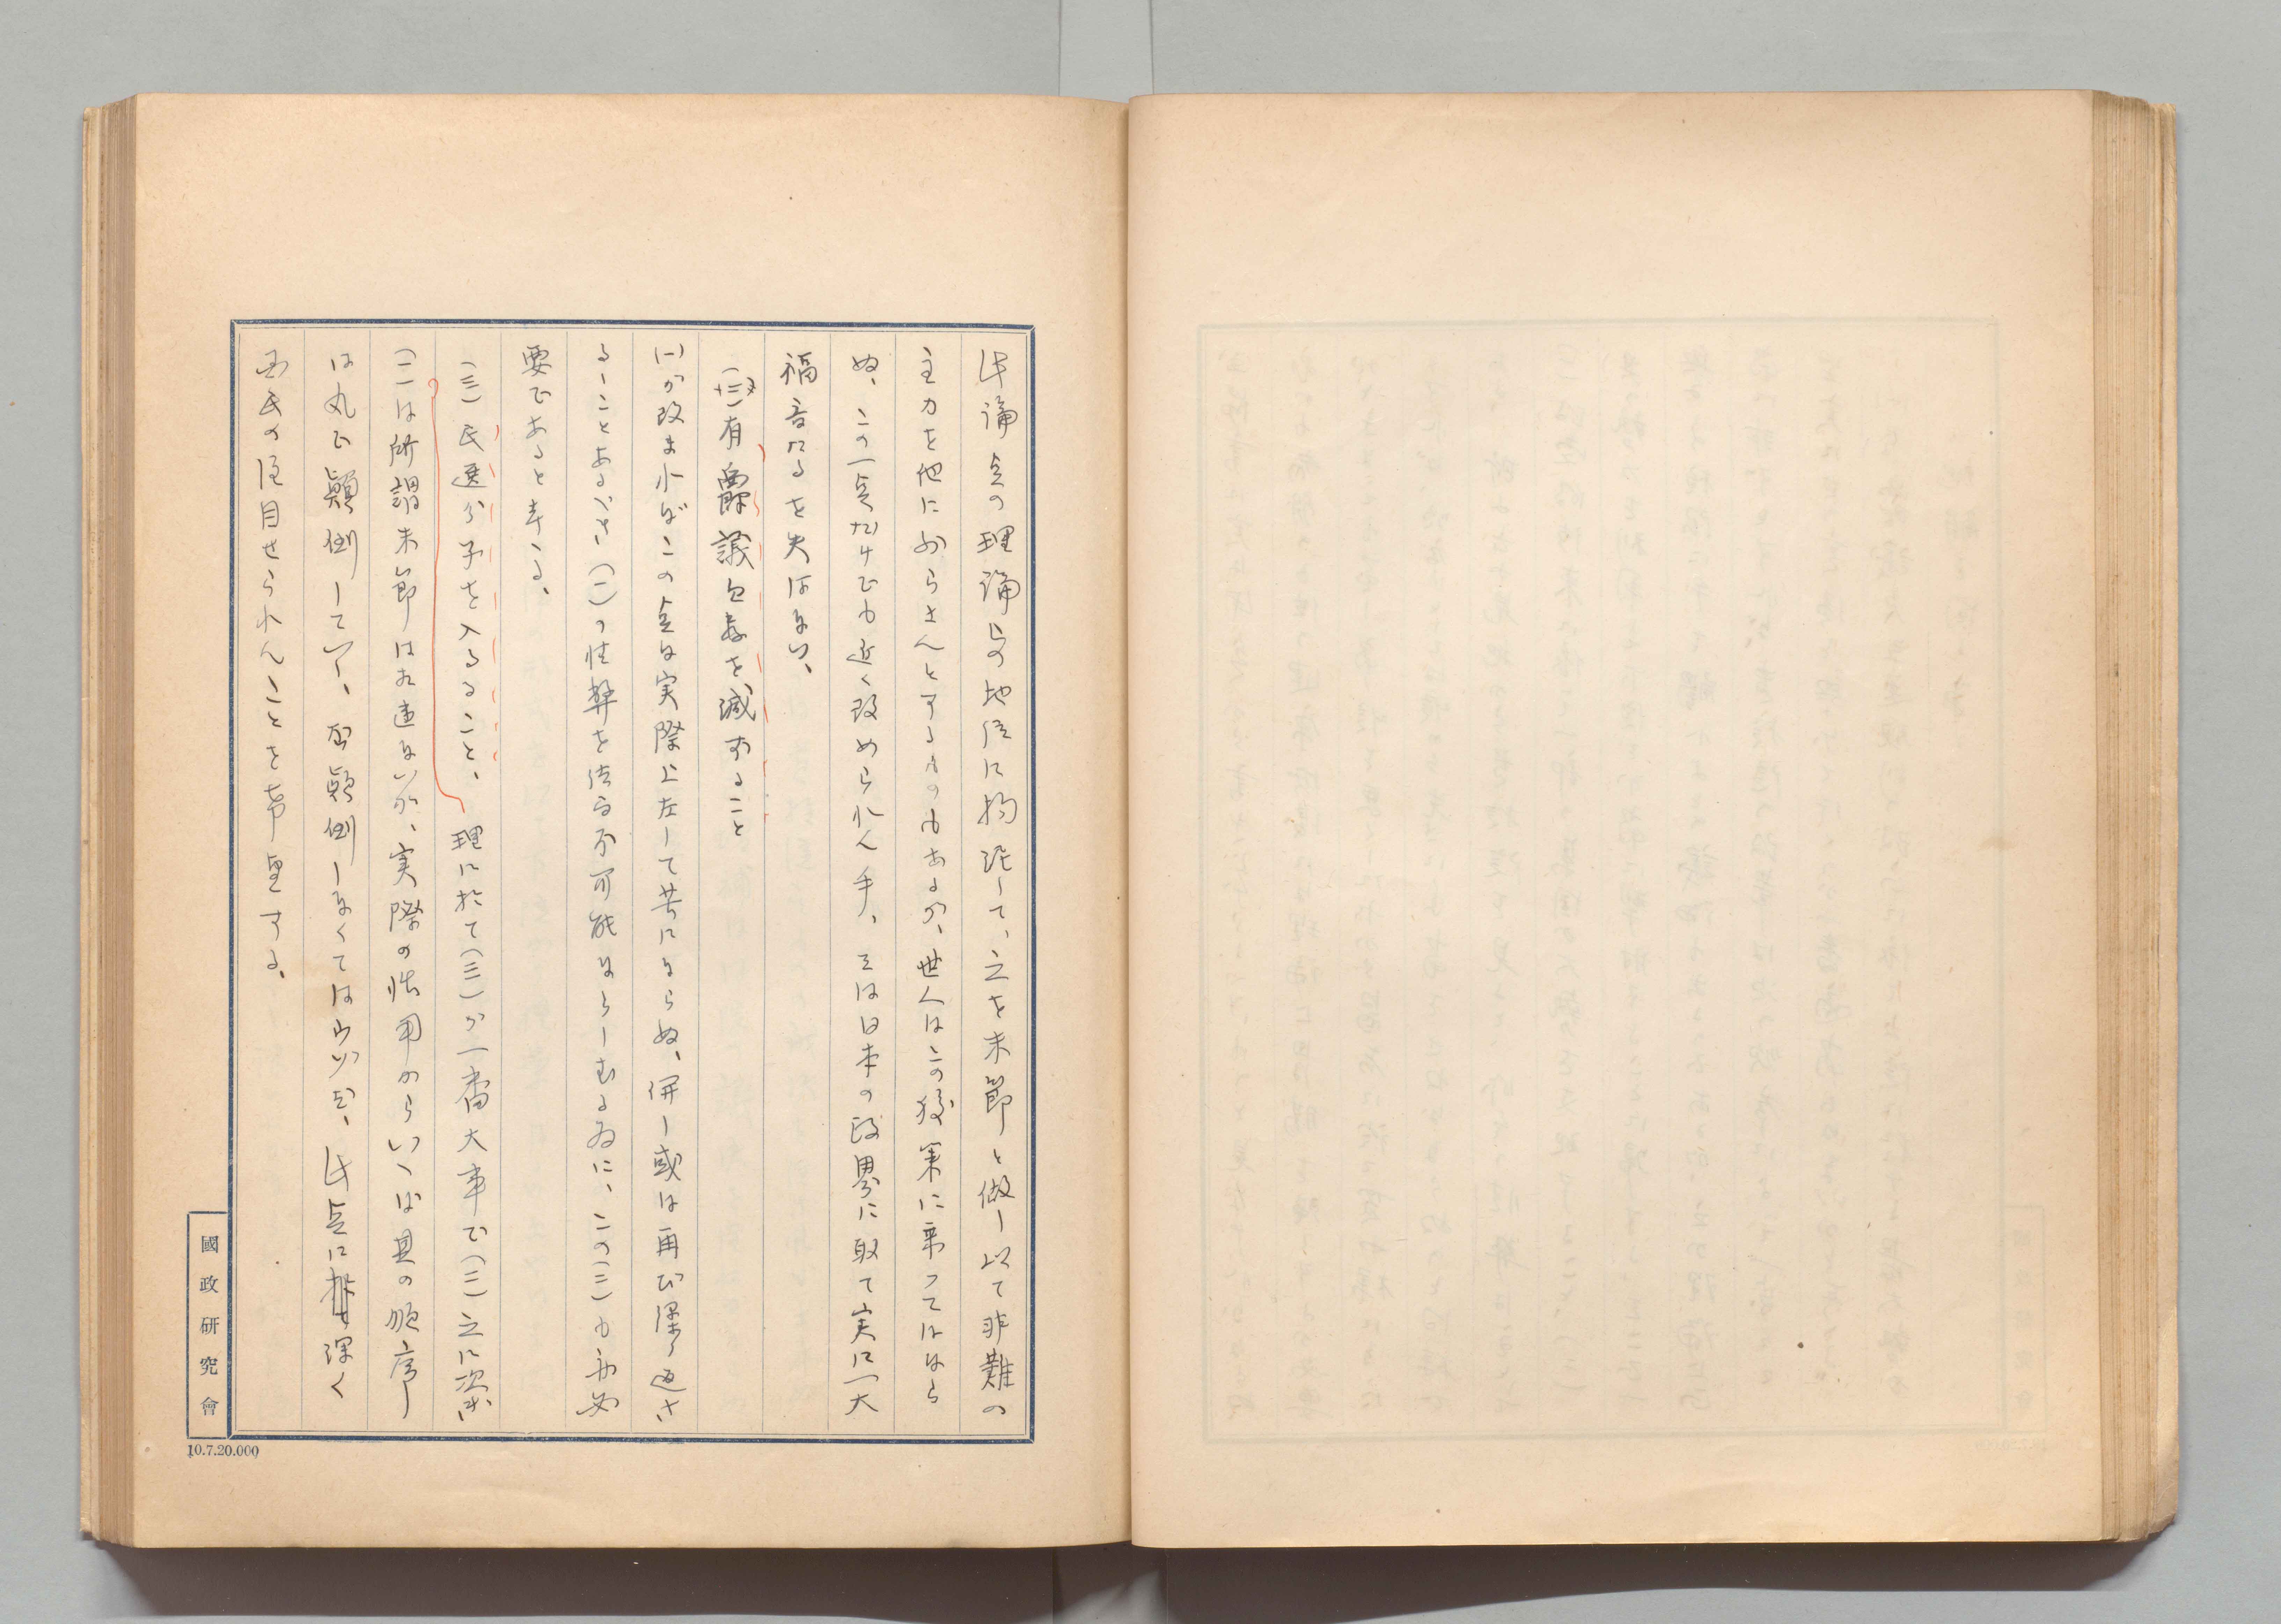 此論点の理論上の地位に拘泥して、之を末節と做し以て非難の
主力を他に向らさんとするものもあるが、世人はこの狡策に乗つてはなら
ぬ、この一点だけでも近く改められん乎、そは日本の政界に取て実に一大
福音たるを失はない、
(二)有爵議員数を減ずること
(一)が改まればこの点は実際上左して苦にならぬ、併し或は再び繰り返さ
るゝことあるべき(一)の情弊を結局不可能ならしむる為に、この(二)も必
要であると考へる、
(三)民選分子を入るること、理に於て(三)が一番大事で(二)之に次ぎ
(一)は所謂末節には相違ないが、実際の性用からいへば其の順序
は丸で顛倒してい、否顛倒しなくては此点に深く
国民の注目せられんことを希望する、
國政研究會
10.7.20.000